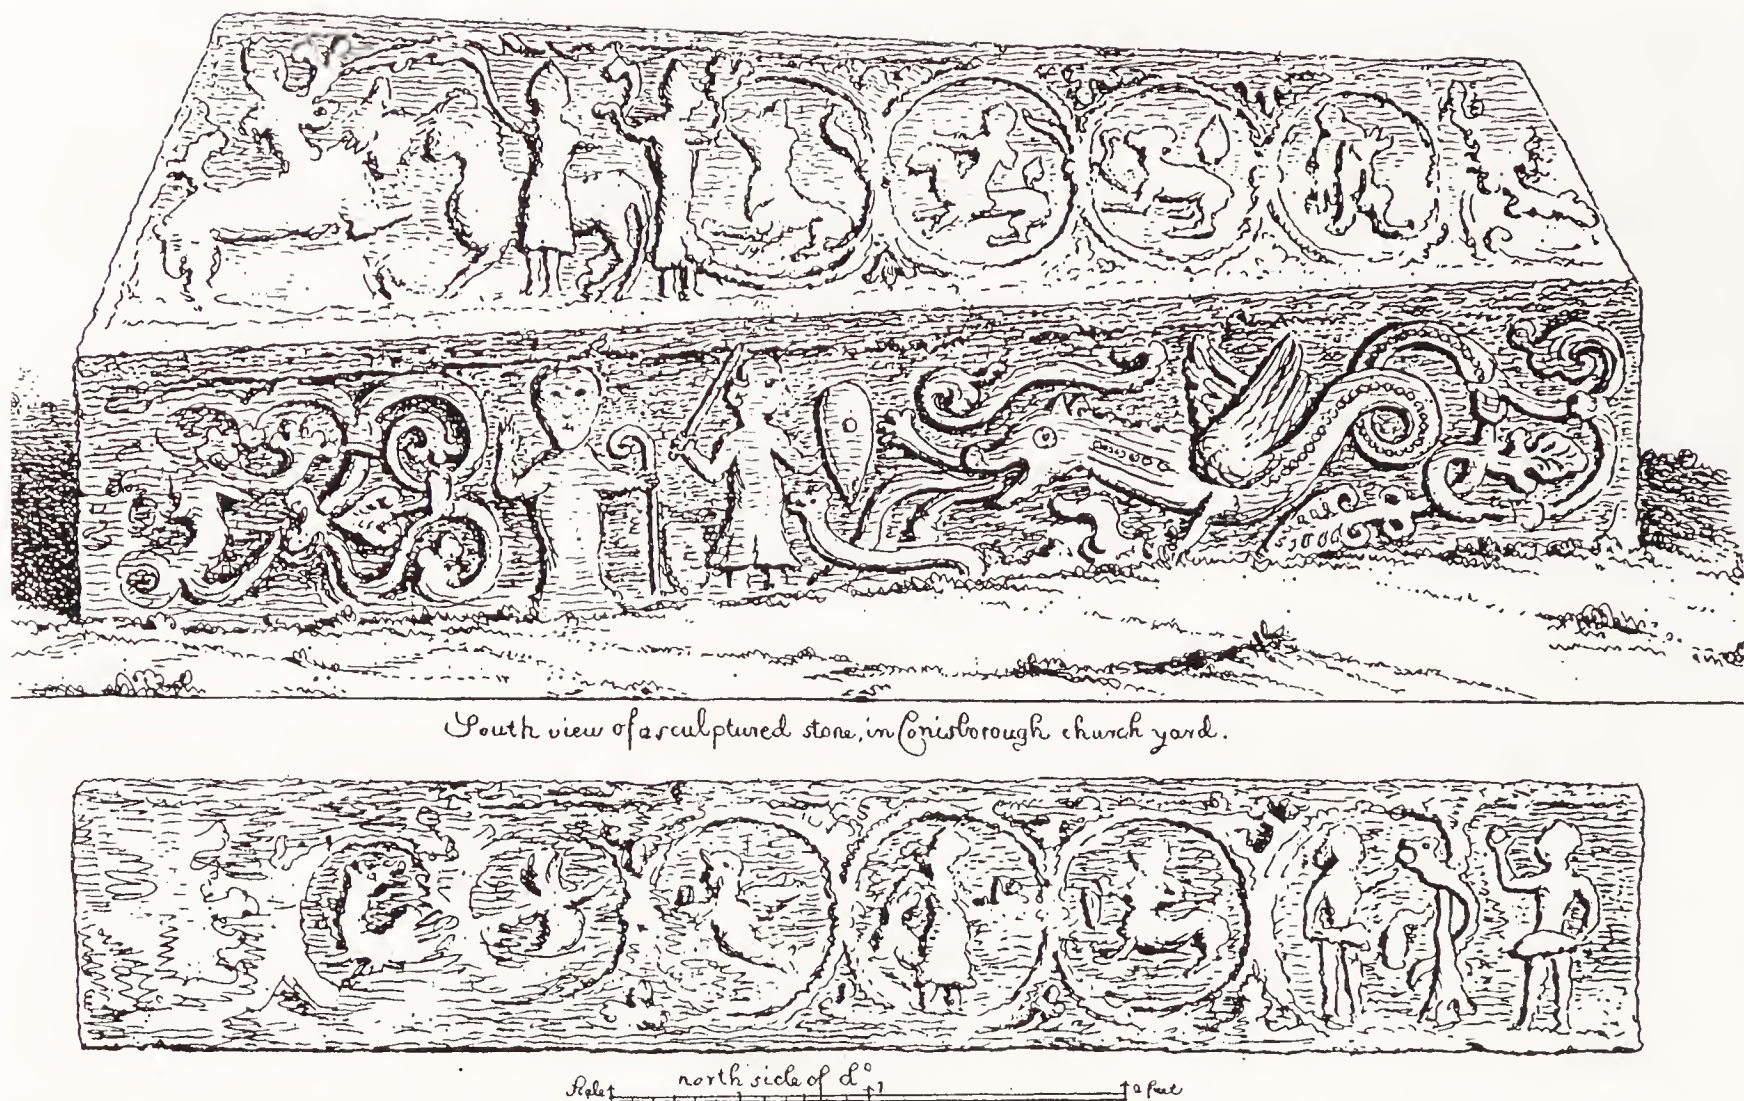 South view of a sculptured stone, in Conisborough church yard.
north side of d°
Scale 1 2 feet